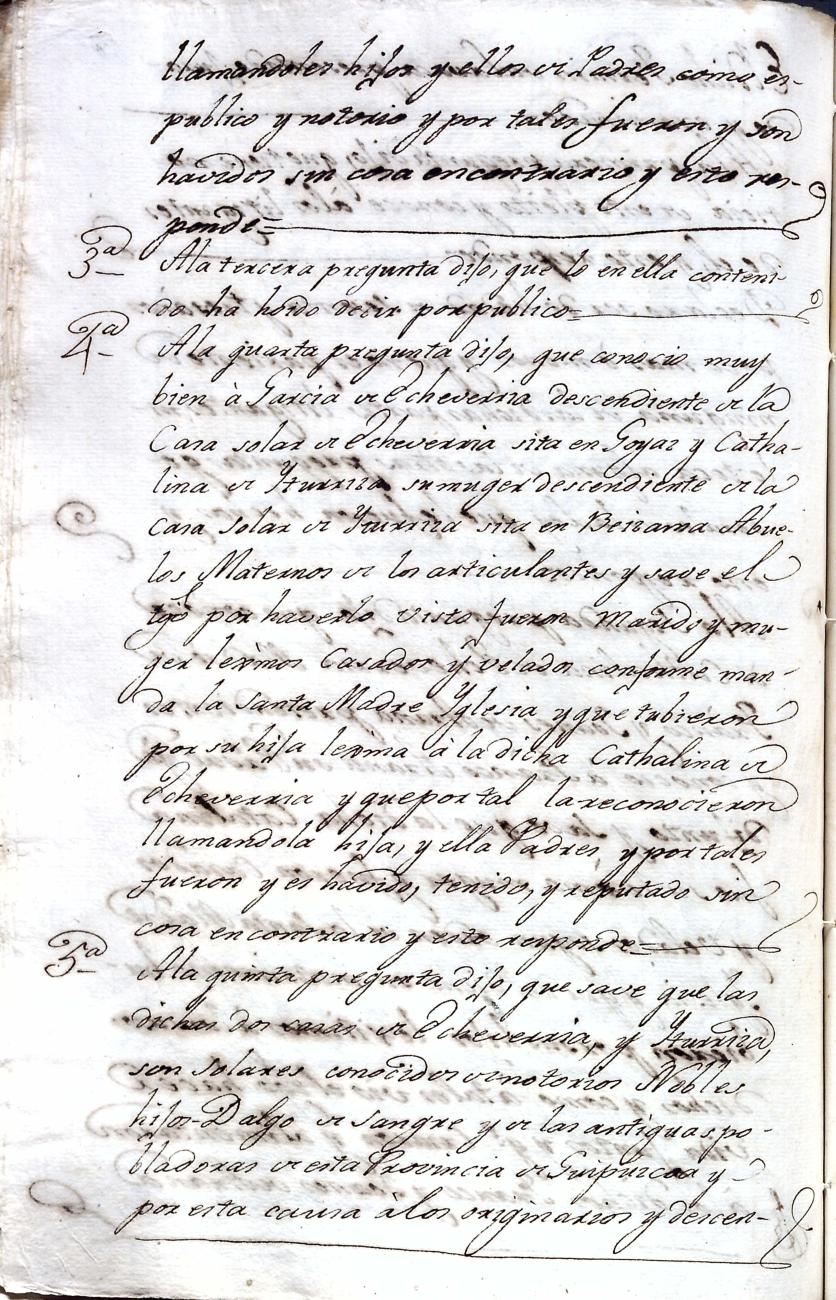 llamandoles hijos y ellos de Padres como es
publico y notorio y por tales fueron y son
havidos sin cosa en contrario y esto res-
ponde=
3ª A la tercera pregunta dijo, que lo en ella conteni
do ha hoido decir por publico=
4ª A la quarta pregunta dijo, que conocio muy
bien à Garcia de Echeverria descendiente de la
Casa solar de Echeverria sita en Goyaz y Catha-
lina de Yturriza su muger descendiente de la
Casa solar de Yturriza sita en Beizama Abue-
los Maternos de los articulantes y save el
tgô por haverlo visto fueron Marido y mu-
ger lexmos Casados y velados conforme man-
da la Santa Madre Yglesia y que tubieron
por su hija lexma à la dicha Cathalina de
Echeverria y que por tal la reconocieron
llamandola hija, y ella Padres, y por tales
fueron y es havido, tenido, y reputado sin
cosa en contrario y esto responde=
5ª A la quinta pregunta dijo, que save que las
dichas dos casas de Echeverria, y Yturriza,
son solares conocidos de notorios Nobles
hijos-Dalgo de sangre y de las antiguas po-
bladoras de esta Provincia de Guipuzcoa y
por esta causa à los originarios y descen-